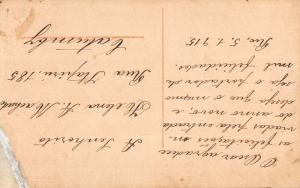 Cesar, agradece
as felicitações en-
viadas pela entrada
do anno novo, e
deseja que o mesmo
seja o portador de
mil felicidades.
Rio, 5.1.915
A Senhorita
Helena F. Machado
Rua Itapirú 185
Catumby